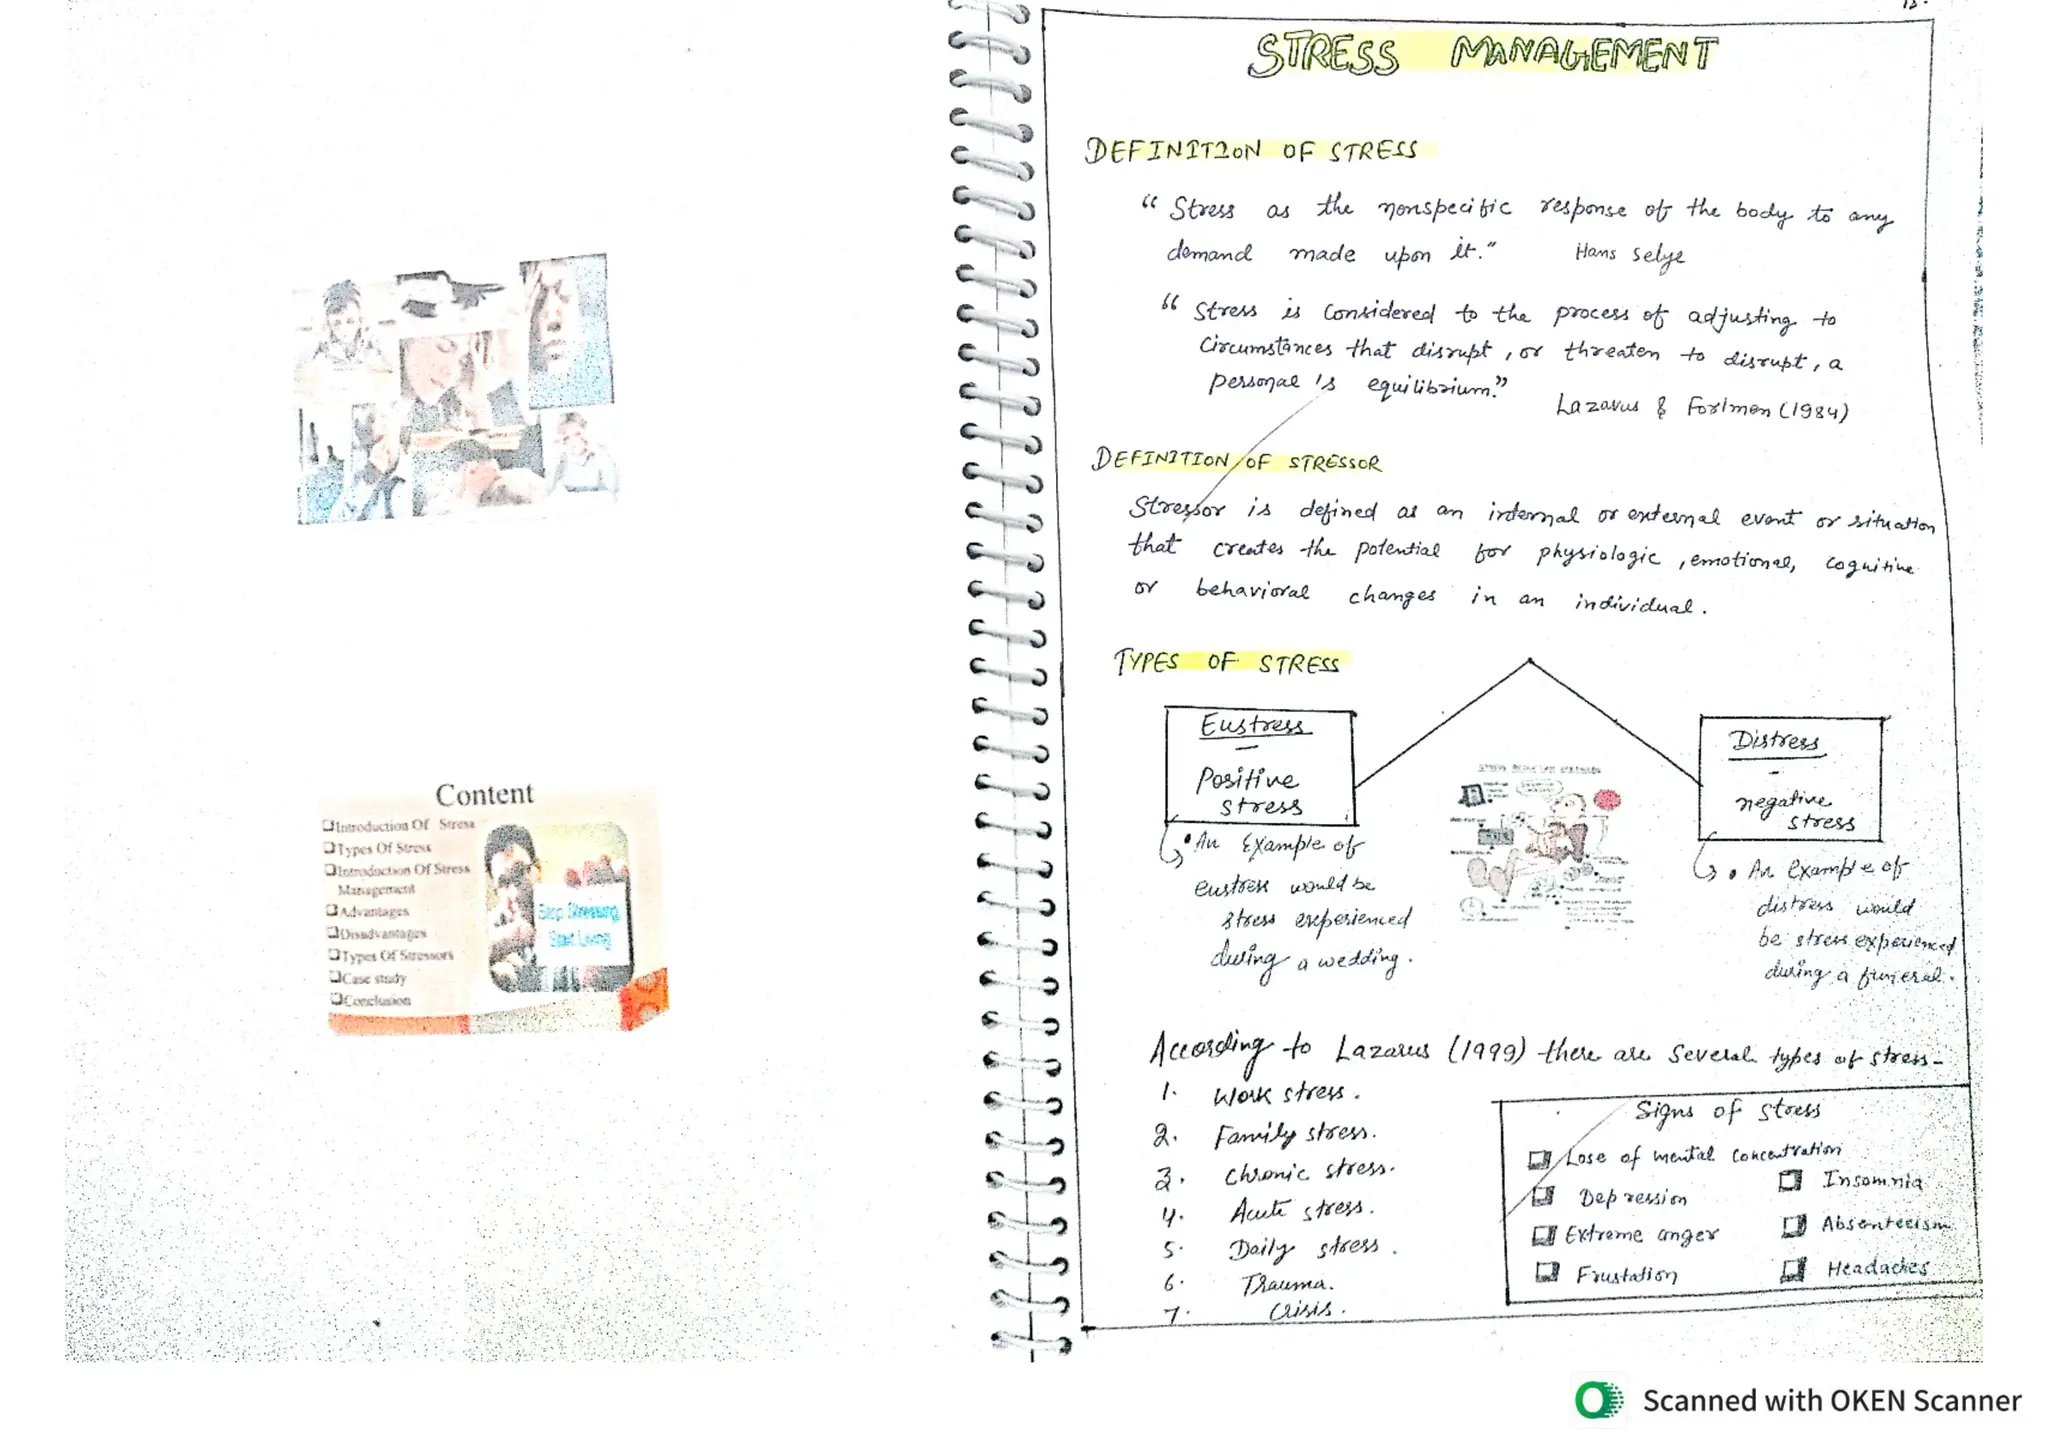 Content
Introduction Of Stress
Types Of Stress
Introduction Of Stress
Management
Advantages
Disadvantages
Types Of Stressors
Case study
Conclusion
Stop Stressing
Start Living
STRESS MANAGEMENT
DEFINITION OF STRESS
“ Stress as the nonspecific response of the body to any
demand made upon it.” Hans Selye
“ Stress is considered to the process of adjusting to
circumstances that disrupt, or threaten to disrupt, a
personal's equilibrium.”
Lazarus & Forlmen (1984)
DEFINITION OF STRESSOR
Stressor is defined as an internal or external event or situation
that creates the potential for physiologic, emotional, cognitive
or behavioral changes in an individual.
TYPES OF STRESS
Eustress
-
Positive
stress
• An Example of
eustress would be
stress experienced
during a wedding.
Distress
-
negative
stress
• An Example of
distress would
be stress experienced
during a funeral.
According to Lazarus (1999) there are several types of stress-
1. Work stress.
2. Family stress.
3. Chronic stress.
4. Acute stress.
5. Daily stress.
6. Trauma.
7. Crisis.
Signs of stress
Lose of mental concentration
Depression
Insomnia
Extreme anger
Absenteeism
Frustation
Headaches
Scanned with OKEN Scanner